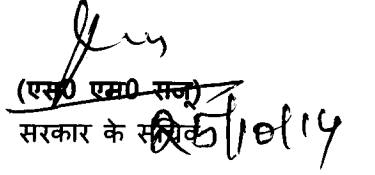 (एस0 एम0 सजू)
सरकार के सचिव
25/10/14